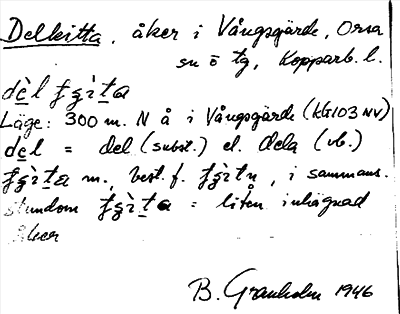 Delkitta, åker i Vångsgärde, Orsa
sn ö tg, Kopparb. l.
dè̱l fʒìta
Läge: 300 m. N å i Vångsgärde (KG103 NV)
de̱l = del (subst.) el. dela (vb.)
fʒìta m., best. f. fʒìtn, i sammans.
stundom fʒìta = liten inhägnad
åker
B. Granholm 1946